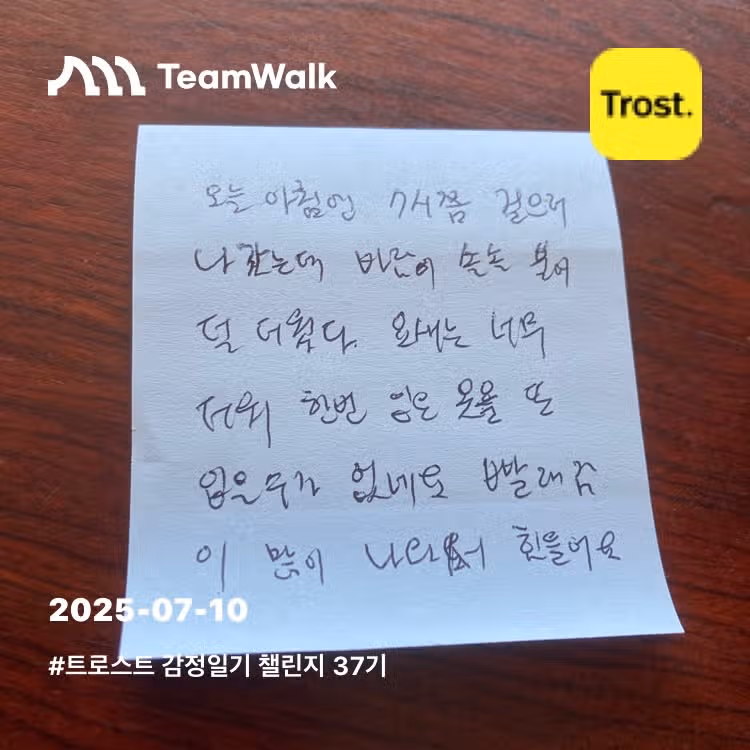 TeamWalk
Trost.
오늘 아침엔 7시쯤 걸으러
나갔는데 바람이 솔솔 불어
덜 더웠다. 요새는 너무
더워 한번 입은 옷을 또
입을수가 없네요 빨래감
이 많이 나와서 힘들어요
2025-07-10
#트로스트 감정일기 챌린지 37기